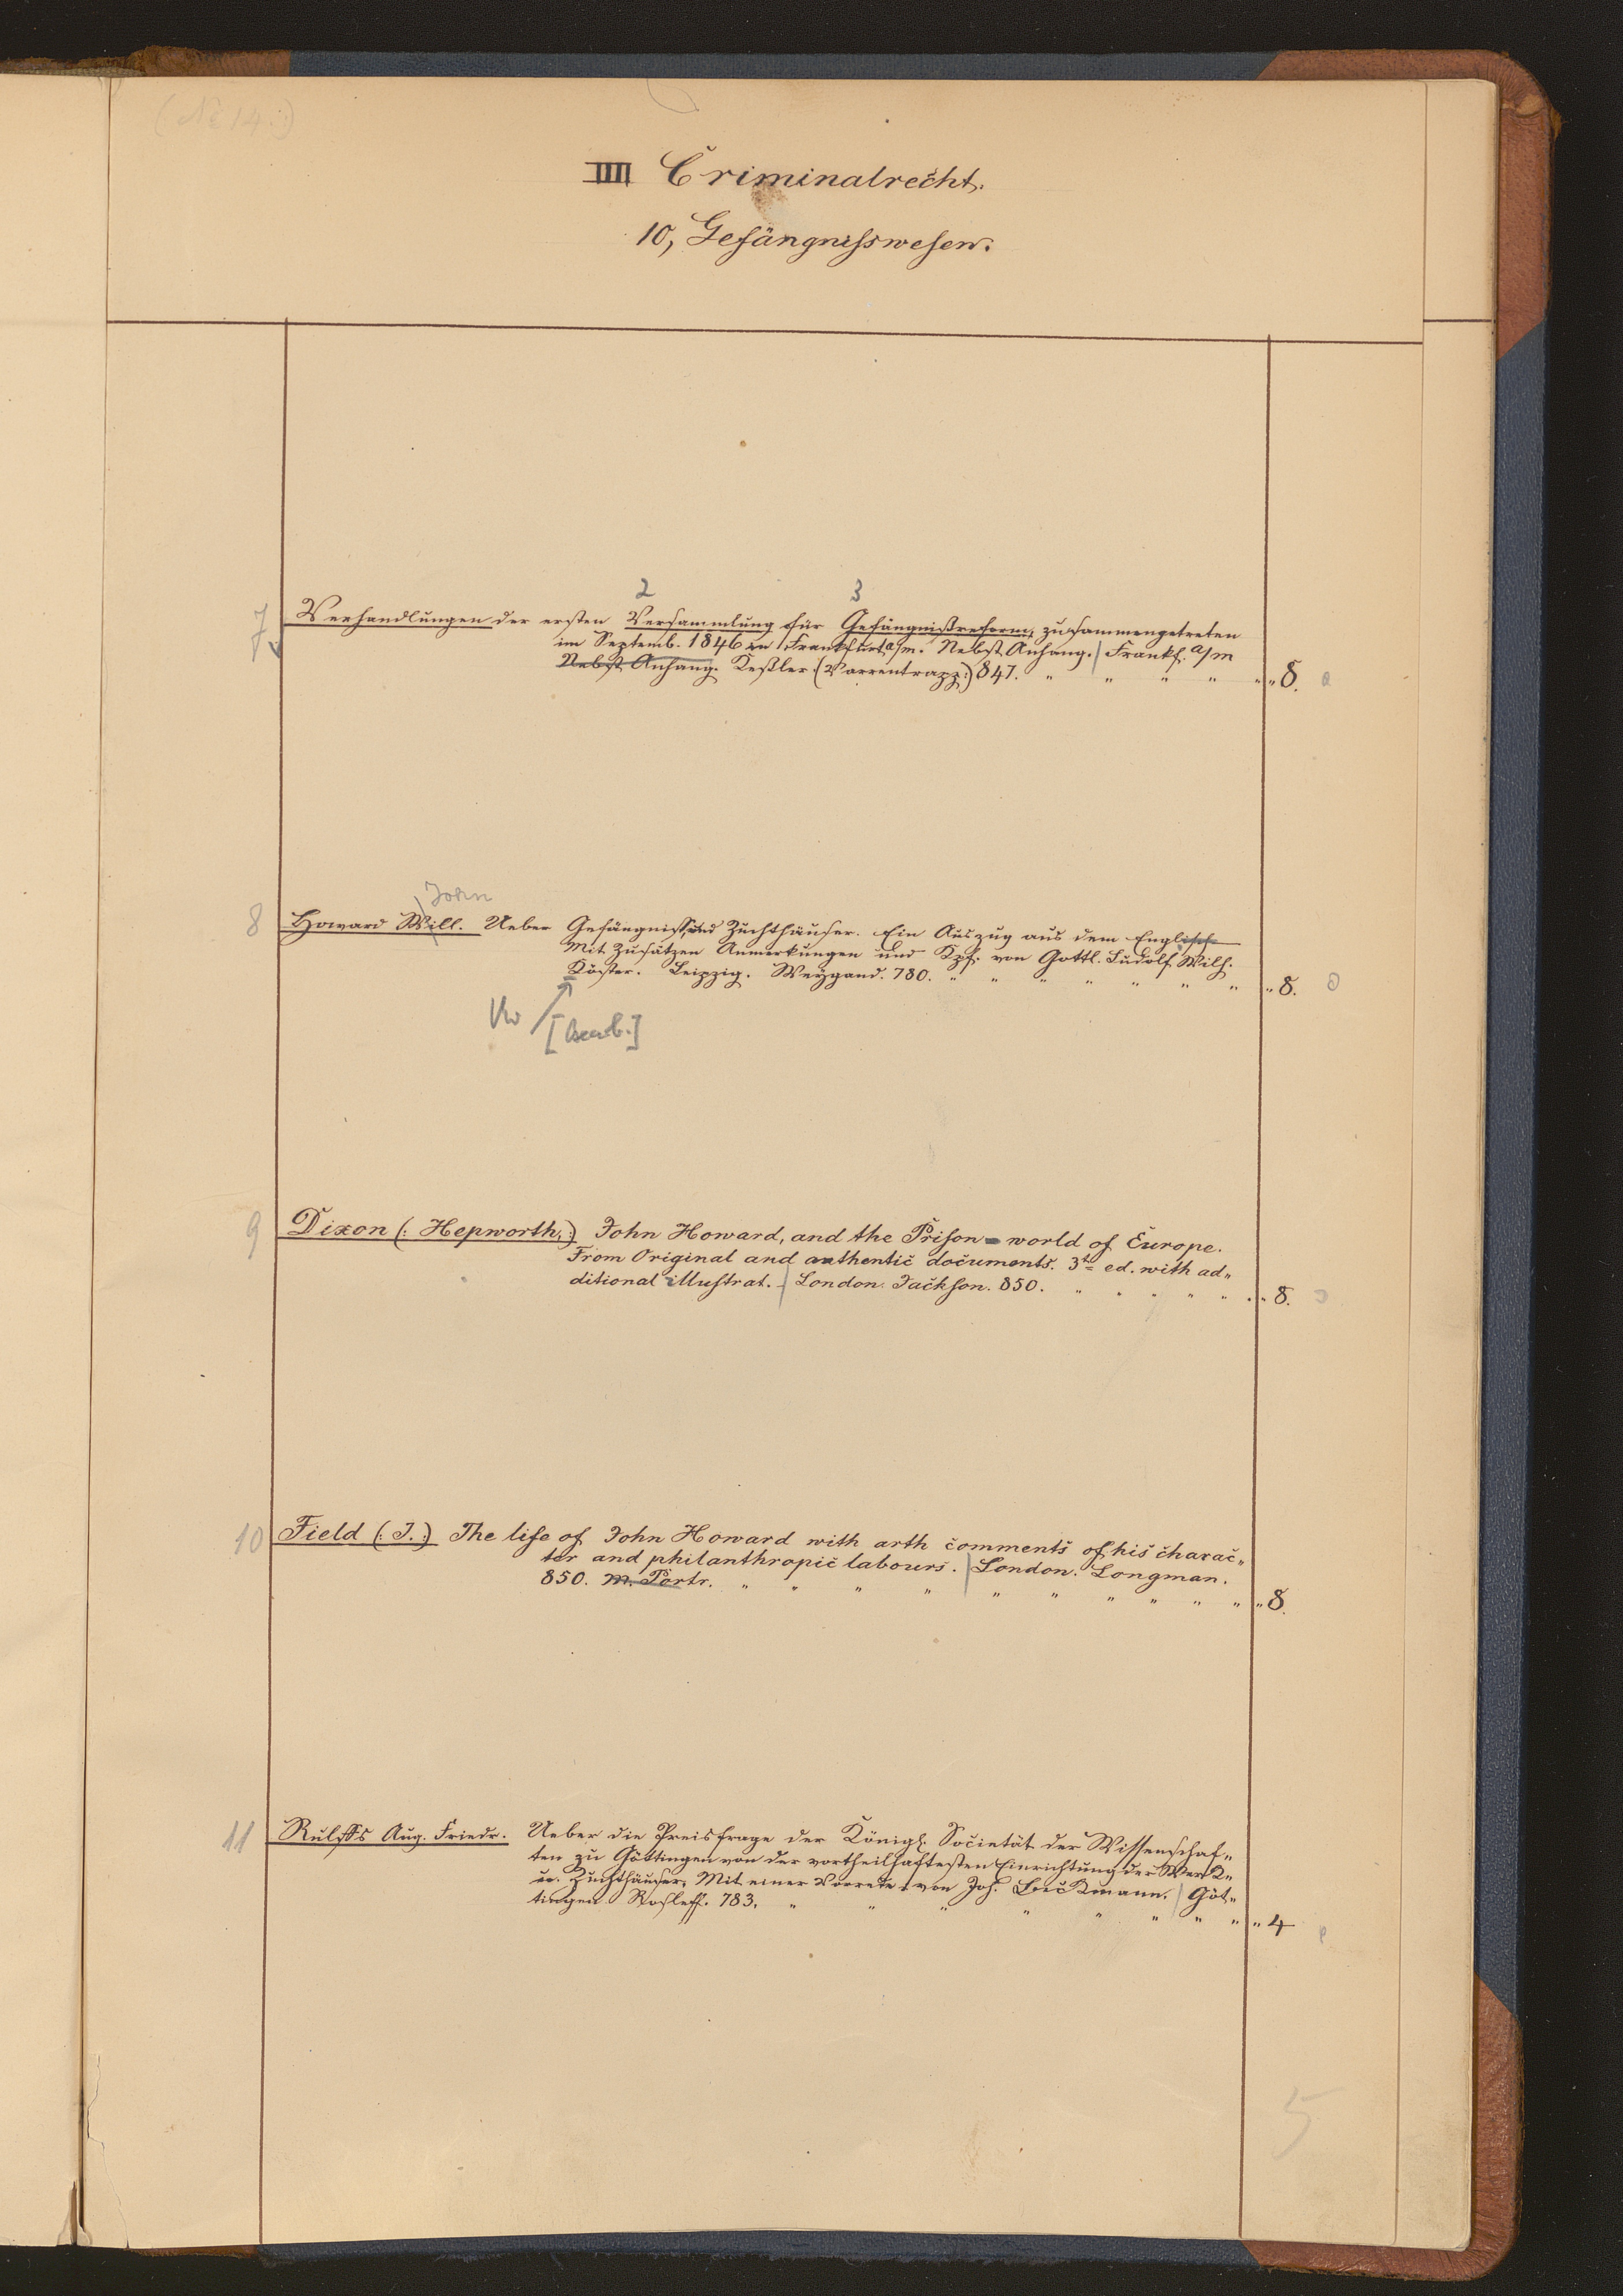 (No 14.)
IIII Criminalrecht.
10, Gefängnisswesen.
2 3
7 Verhandlungen der ersten Versammlung für Gefängnißreform, zusammengetreten
im Septemb. 1846 in Frankfurt a/m. Nebst Anhang. Frankf. a/m
Nebst Anhang. Keßler (Varrentrapp:) 847. " " " " " " 8.
John
8 Howard Will. Ueber Gefängniss und Zuchthäuser. Ein Auszug aus dem Englisch
Mit Zusätzen Anmerkungen und Kpf. von Gottl. Ludolf Wilh.
Köster. Leipzig. Weygand. 780. " " " " " " " " 8.
9 Dixon (: Hepworth,:) John Howard, and the Prison-world of Europe.
From Original and authentic documents. 3t ed. with ad„
ditional illustrat. London. Jackson. 850. " " " " " " " 8.
10 Field (: J.:) The life of John Howard with arth comments of his charac„
ter and philanthropic labours. London. Longman.
850. m. Portr. " " " " " " " " " " " 8.
11 Rulffs Aug. Friedr. Ueber die Preisfrage der Königl. Societät der Wissenschaf„
ten zu Göttingen von der vortheilhaftesten Einrichtung der Werk„
u. Zuchthäuser, Mit einer Vorrede von Joh. Beckmann. Göt„
tingen Rosleff. 783. " " " " " " " " " 4
5